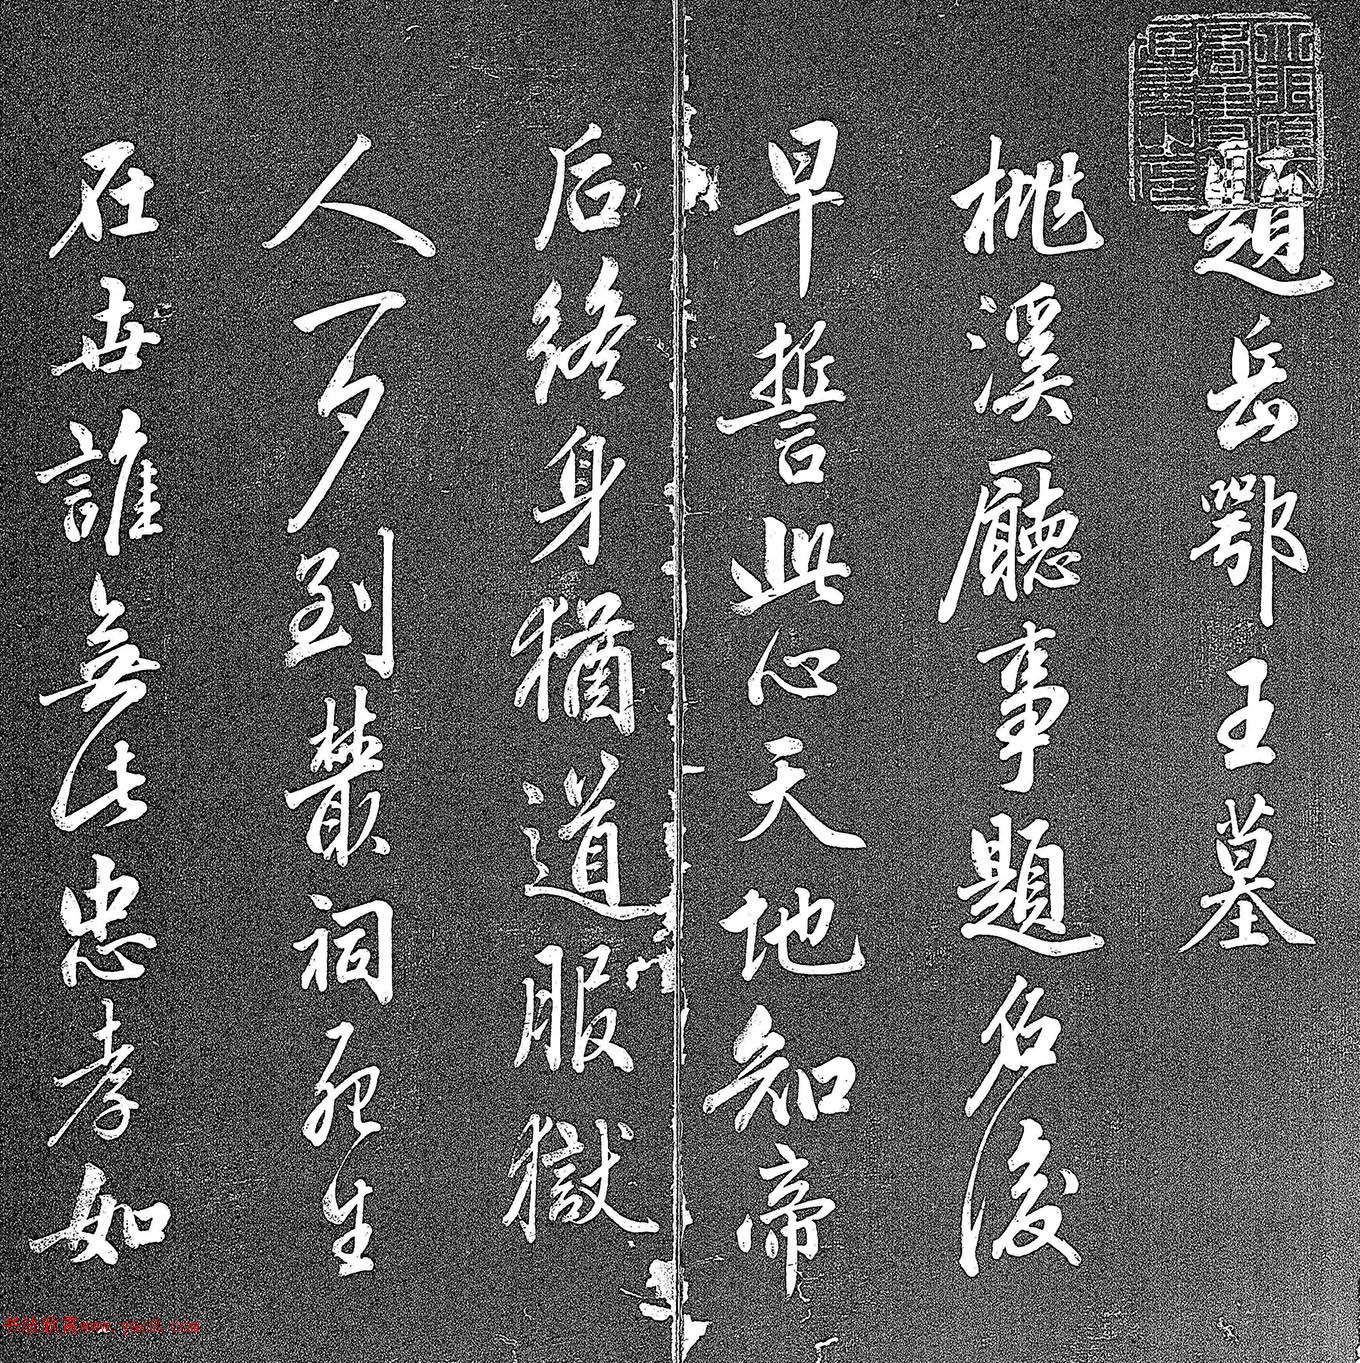 題岳鄂王墓
桃溪廳事題名後
早誓此心天地知帝
后終身猶道服獄
人一夕到叢祠死生
在世誰無此忠孝如
书法收藏www.yac8.com